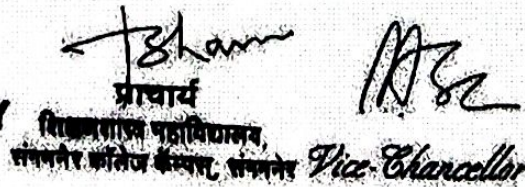 प्राचार्य
शिक्षणशास्त्र महाविद्यालय,
संगमनेर कॉलेज कॅम्पस्, संगमनेर
Vice-Chancellor